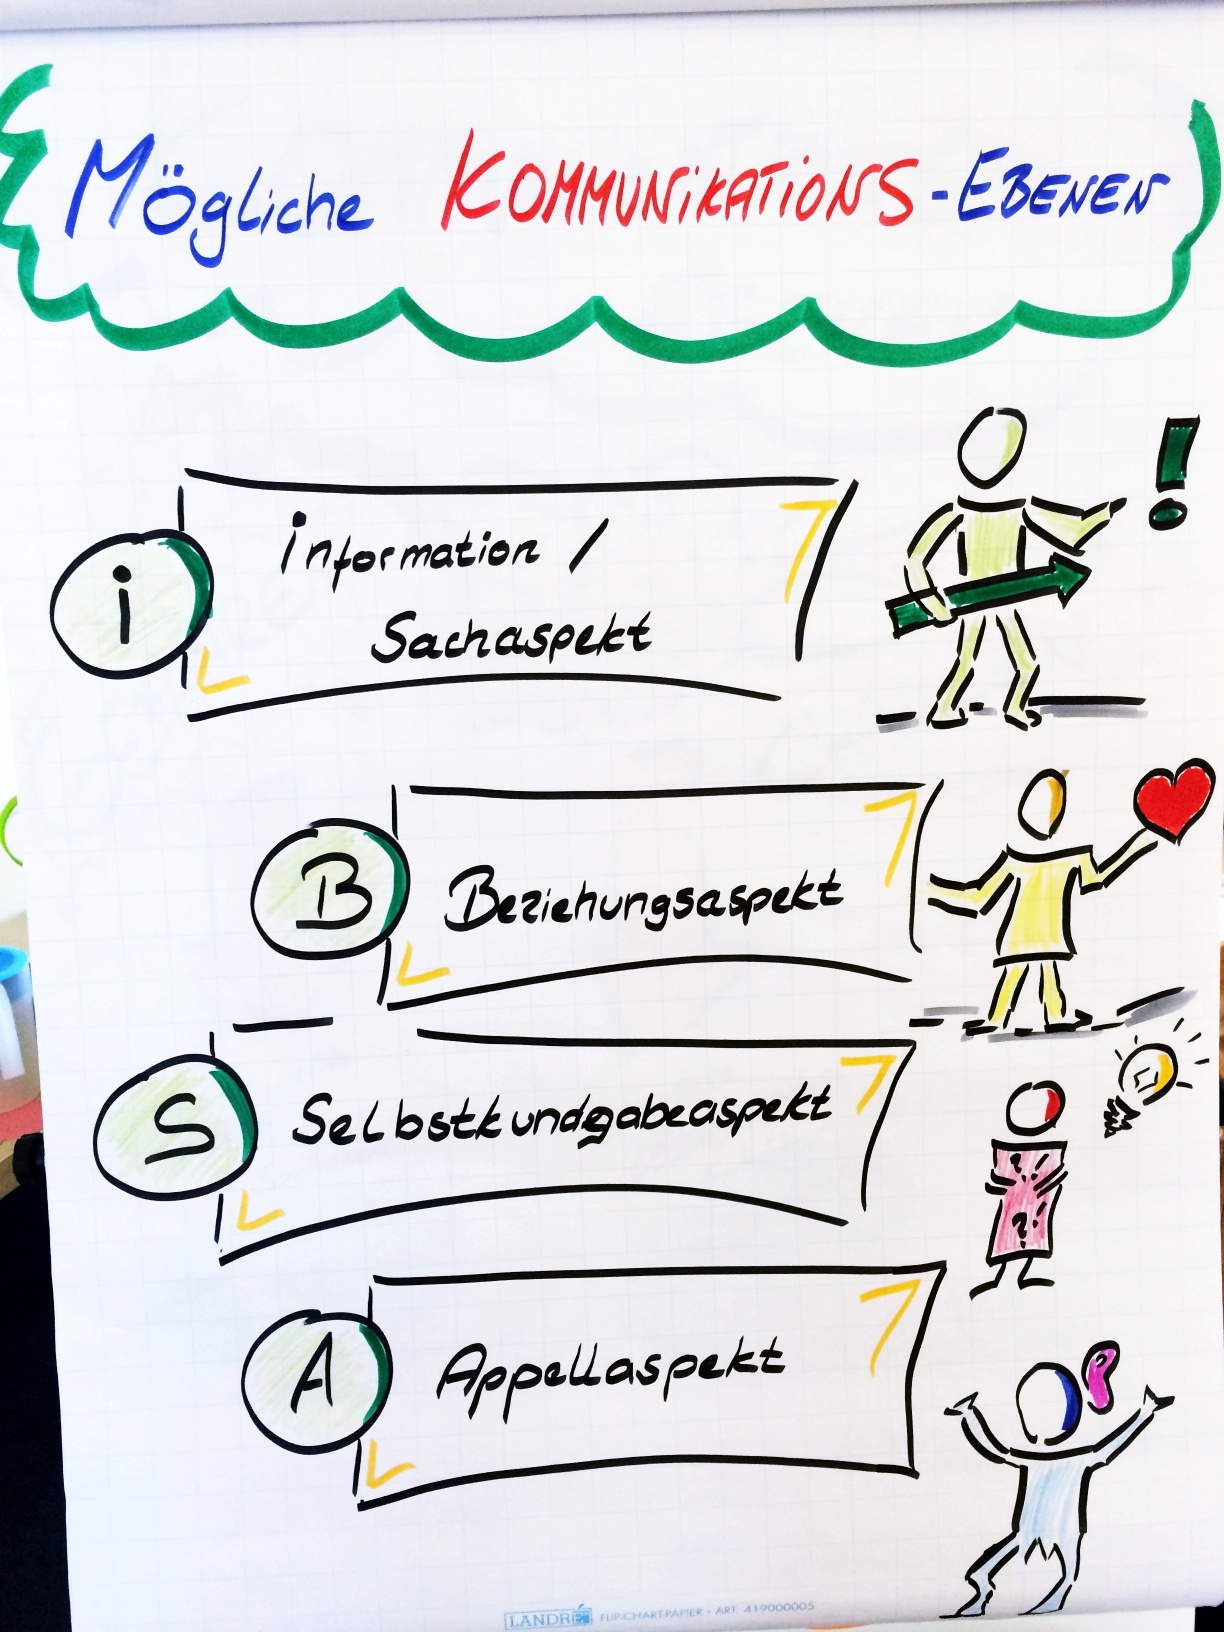 Mögliche KOMMUNiKATiONS-EBENEN
!
i
information /
Sachaspekt
B
Beziehungsaspekt
S
Selbstkundgabeaspekt
? !
?
A
Appellaspekt
LANDRÉ FLIP-CHART-PAPIER - ART. 419000005